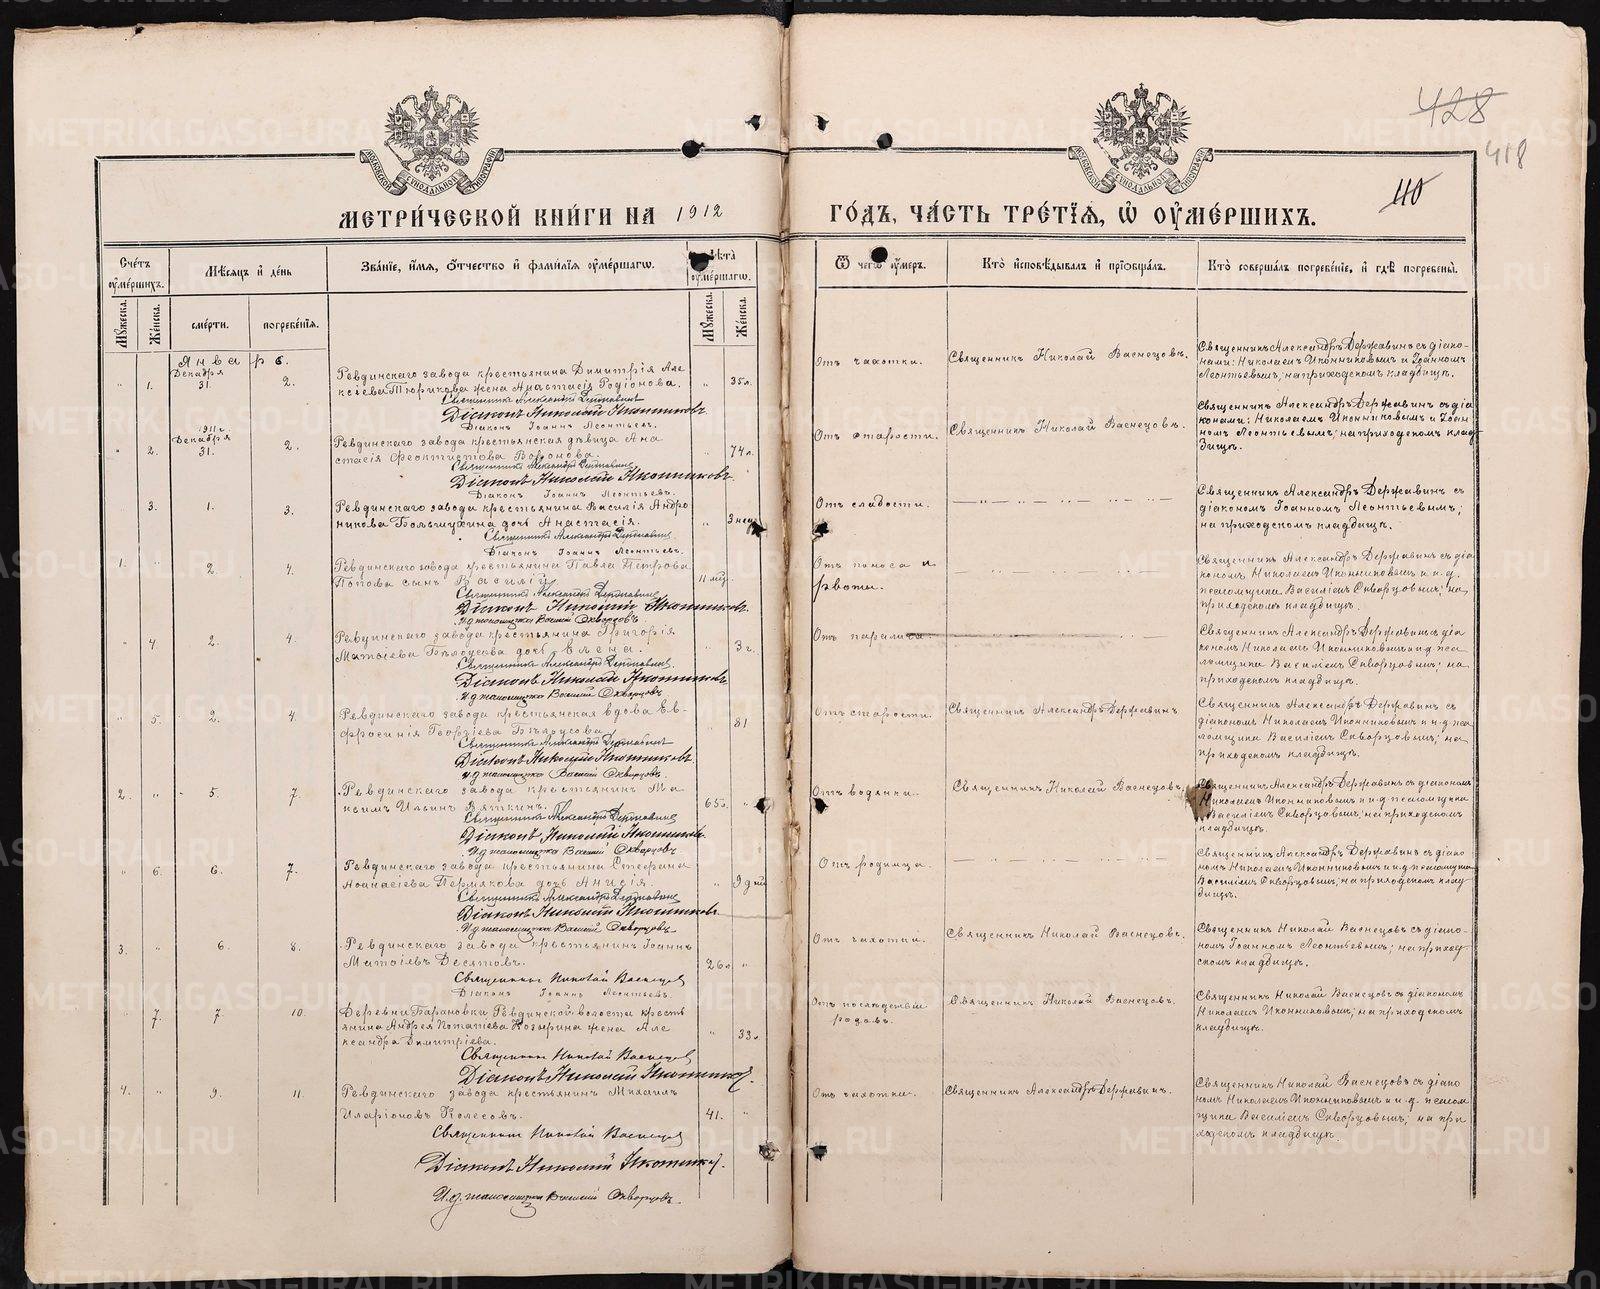 428
418
110
МЕТРИ́ЧЕСКОЙ КНИ́ГИ НА 1912
ГО́ДЪ, ЧА́СТЬ ТРЕ́ТІѦ, Ѡ҆ ОУ҆МЕ́РШИХЪ.
Счетъ оумершихъ.
Мужеска.
Женска.
Мѣсяцъ и день
смерти.
погребенія.
Званіе, имя, отчество и фамилія оумершагѡ.
оумершагѡ.
Мужеска.
Женска.
Ѿ чегѡ оумеръ.
Кто исповѣдывалъ и пріобщалъ.
Кто совершалъ погребеніе, и гдѣ погребены.
Января 6.
Декабря
" 1. 31. 2.
Ревдинскаго завода крестьянина Димитрія Але
ксѣева Тюрикова жена Анастасія Родіонова. " 35 л.
Священникъ Александръ Державинъ
Діаконъ Николай Иконниковъ
Діаконъ Іоаннъ Леонтьевъ.
Отъ чахотки.
Священникъ Николай Васнецовъ.
Священникъ Александръ Державинъ съ діако-
нами: Николаемъ Иконниковымъ и Іоанномъ
Леонтьевымъ; на приходскомъ кладбищѣ.
1911 г.
Декабря
" 2. 31. 2.
Ревдинскаго завода крестьянская дѣвица Ана
стасія Феоктистова Воронова. " 74 л.
Священникъ Александръ Державинъ
Діаконъ Николай Иконниковъ.
Діаконъ Іоаннъ Леонтьевъ.
Отъ старости.
Священникъ Николай Васнецовъ.
Священникъ Александръ Державинъ съ діа
конами: Николаемъ Иконниковымъ и Іоан
номъ Леонтьевымъ; на приходскомъ клад
бищѣ.
3. 1. 3.
Ревдинскаго завода крестьянина Василія Андро
никова Большухина дочь Анастасія. " 3 нед.
Священникъ Александръ Державинъ
Діаконъ Іоаннъ Леонтьевъ.
Отъ слабости.
Священникъ Александръ Державинъ съ
діакономъ Іоанномъ Леонтьевымъ;
на приходскомъ кладбищѣ.
1. " 2. 4.
Ревдинскаго завода крестьянина Павла Петрова
Попова сынъ Василій 11 мѣс.
Священникъ Александръ Державинъ
Діаконъ Николай Иконниковъ.
И д псаломщика Василій Скворцовъ
Отъ поноса и
рвоты.
Священникъ Александръ Державинъ съ діа
кономъ Николаемъ Иконниковымъ и и.д.
псаломщика Василіемъ Скворцовымъ; на
приходскомъ кладбищѣ.
" 4. 2. 4.
Ревдинскаго завода крестьянина Григорія
Матѳіева Бѣлоусова дочь Елена. " 3 г.
Священникъ Александръ Державинъ
Діаконъ Николай Иконниковъ
И д псаломщика Василій Скворцовъ
Отъ паралича
Священникъ Александръ Державинъ съ діа
кономъ Николаемъ Иконниковымъ и и д пса
ломщика Василіемъ Скворцовымъ; на
приходскомъ кладбищѣ.
" 5. 2. 4.
Ревдинскаго завода крестьянская вдова Ев-
фросинія Георгіева Бѣлоусова 81
Священникъ Александръ Державинъ
Діаконъ Николай Иконниковъ.
И д псаломщика Василій Скворцовъ.
Отъ старости.
Священникъ Александръ Державинъ
Священникъ Александръ Державинъ съ
діакономъ Николаемъ Иконниковымъ и и.д пса
ломщика Василіемъ Скворцовымъ; на
приходскомъ кладбищѣ.
2. " 5. 7.
Ревдинскаго завода крестьянинъ Ма
ксимъ Ильинъ Вяткинъ. 65 л.
Священникъ Александръ Державинъ
Діаконъ Николай Иконниковъ.
И д псаломщика Василій Скворцовъ
Отъ водянки.
Священникъ Николай Васнецовъ.
Священникъ Александръ Державинъ съ діакономъ
Николаемъ Иконниковымъ и и.д псаломщика
Василіемъ Скворцовымъ; на приходскомъ
кладбищѣ.
" 6. 6. 7.
Ревдинскаго завода крестьянина Стефана
Аѳанасіева Пермякова дочь Анисія. " 9 дней
Священникъ Александръ Державинъ
Діаконъ Николай Иконниковъ.
И д псаломщика Василій Скворцовъ
Отъ родимца.
Священникъ Александръ Державинъ съ діако
номъ Николаемъ Иконниковымъ и и.д псаломщика
Василіемъ Скворцовымъ; на приходскомъ клад
бищѣ.
3. " 6. 8.
Ревдинскаго завода крестьянинъ Іоаннъ
Матѳіевъ Десятовъ. 26 л "
Священникъ Николай Васнецовъ
Діаконъ Іоаннъ Леонтьевъ.
Отъ чахотки.
Священникъ Николай Васнецовъ.
Священникъ Николай Васнецовъ съ діако-
номъ Іоанномъ Леонтьевымъ; на приход-
скомъ кладбищѣ.
" 7. 7. 10.
Деревни Барановки Ревдинской волости кресть
янина Андрея Потапева Козырина жена Але
ксандра Димитріева. " 33 л
Священникъ Николай Васнецовъ
Діаконъ Николай Иконниковъ.
Отъ послѣдствій
родовъ.
Священникъ Николай Васнецовъ.
Священникъ Николай Васнецовъ съ діакономъ
Николаемъ Иконниковымъ; на приходскомъ
кладбищѣ.
4. " 9. 11.
Ревдинскаго завода крестьянинъ Михаилъ
Иларіоновъ Колесовъ. 41. "
Священникъ Николай Васнецовъ
Діаконъ Николай Иконниковъ.
И.д. псаломщика Василій Скворцовъ.
Отъ чахотки.
Священникъ Александръ Державинъ.
Священникъ Николай Васнецовъ съ діако
номъ Николаемъ Иконниковымъ и и.д. псалом
щика Василіемъ Скворцовымъ; на при
ходскомъ кладбищѣ.
METRIKI.GASO-URAL.RU